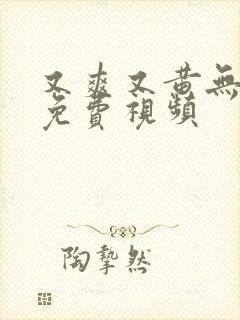 又爽又黄無
免費視頻
陶摯然